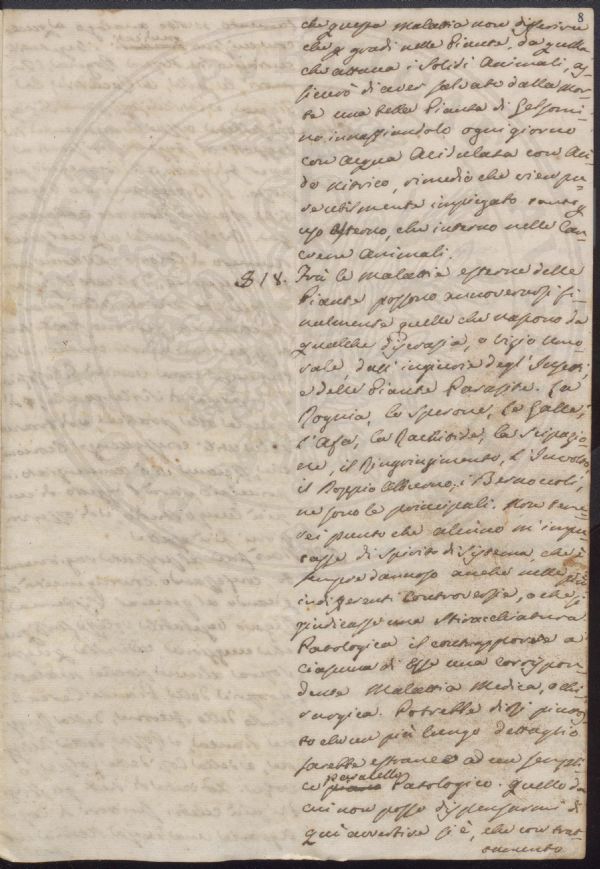 8
che questa malattia non differiva
che p gradi nelle Piante, da quella
che attacca i Solidi Animali, as-
sicurò di aver salvato dalla mor-
te una bella Pianta di Gelsomi-
no innaffiandolo ogni giorno
con acqua Acidulata con Aci-
do nitrico, rimedio che vien pu-
re utilmente impiegato tanto p
uso esterno, che interno nelle Can-
crene Animali.
§ 18. Frà le malattie esterne delle
Piante possono annoverarsi fi-
nalmente quelle che nascono da
qualche discrasia, o vizio umo-
rale, dall'ingiurie degl'Insetti,
e delle Piante Parasite. La
Rognia, lo Sperone, le Galle,
l'Asa, la Rachitide, la
il Ringringimento, L'Involto,
il Doppio Alburno, i Bernoccoli,
ne sono le principali. Non
sei punto che alcuno m'impu-
tasse di spirito di Systema che è
sempre dannoso anche nelle più
indifferenti controversie, o che si
giudicasse una Stiracchiatura
Patologica il contrapporre a
ciascuna di Esse una corrispon-
dente Malattia Medica, o Chi-
rurgica. Potrebbe dirsi piuttos
to che un più lungo dettaglio
sarebbe estraneo ad un sempli-
ce parallello Patologico. Quello da
cui non posso dispensarmi di
qui avvertire si è, che con trat-
tamento